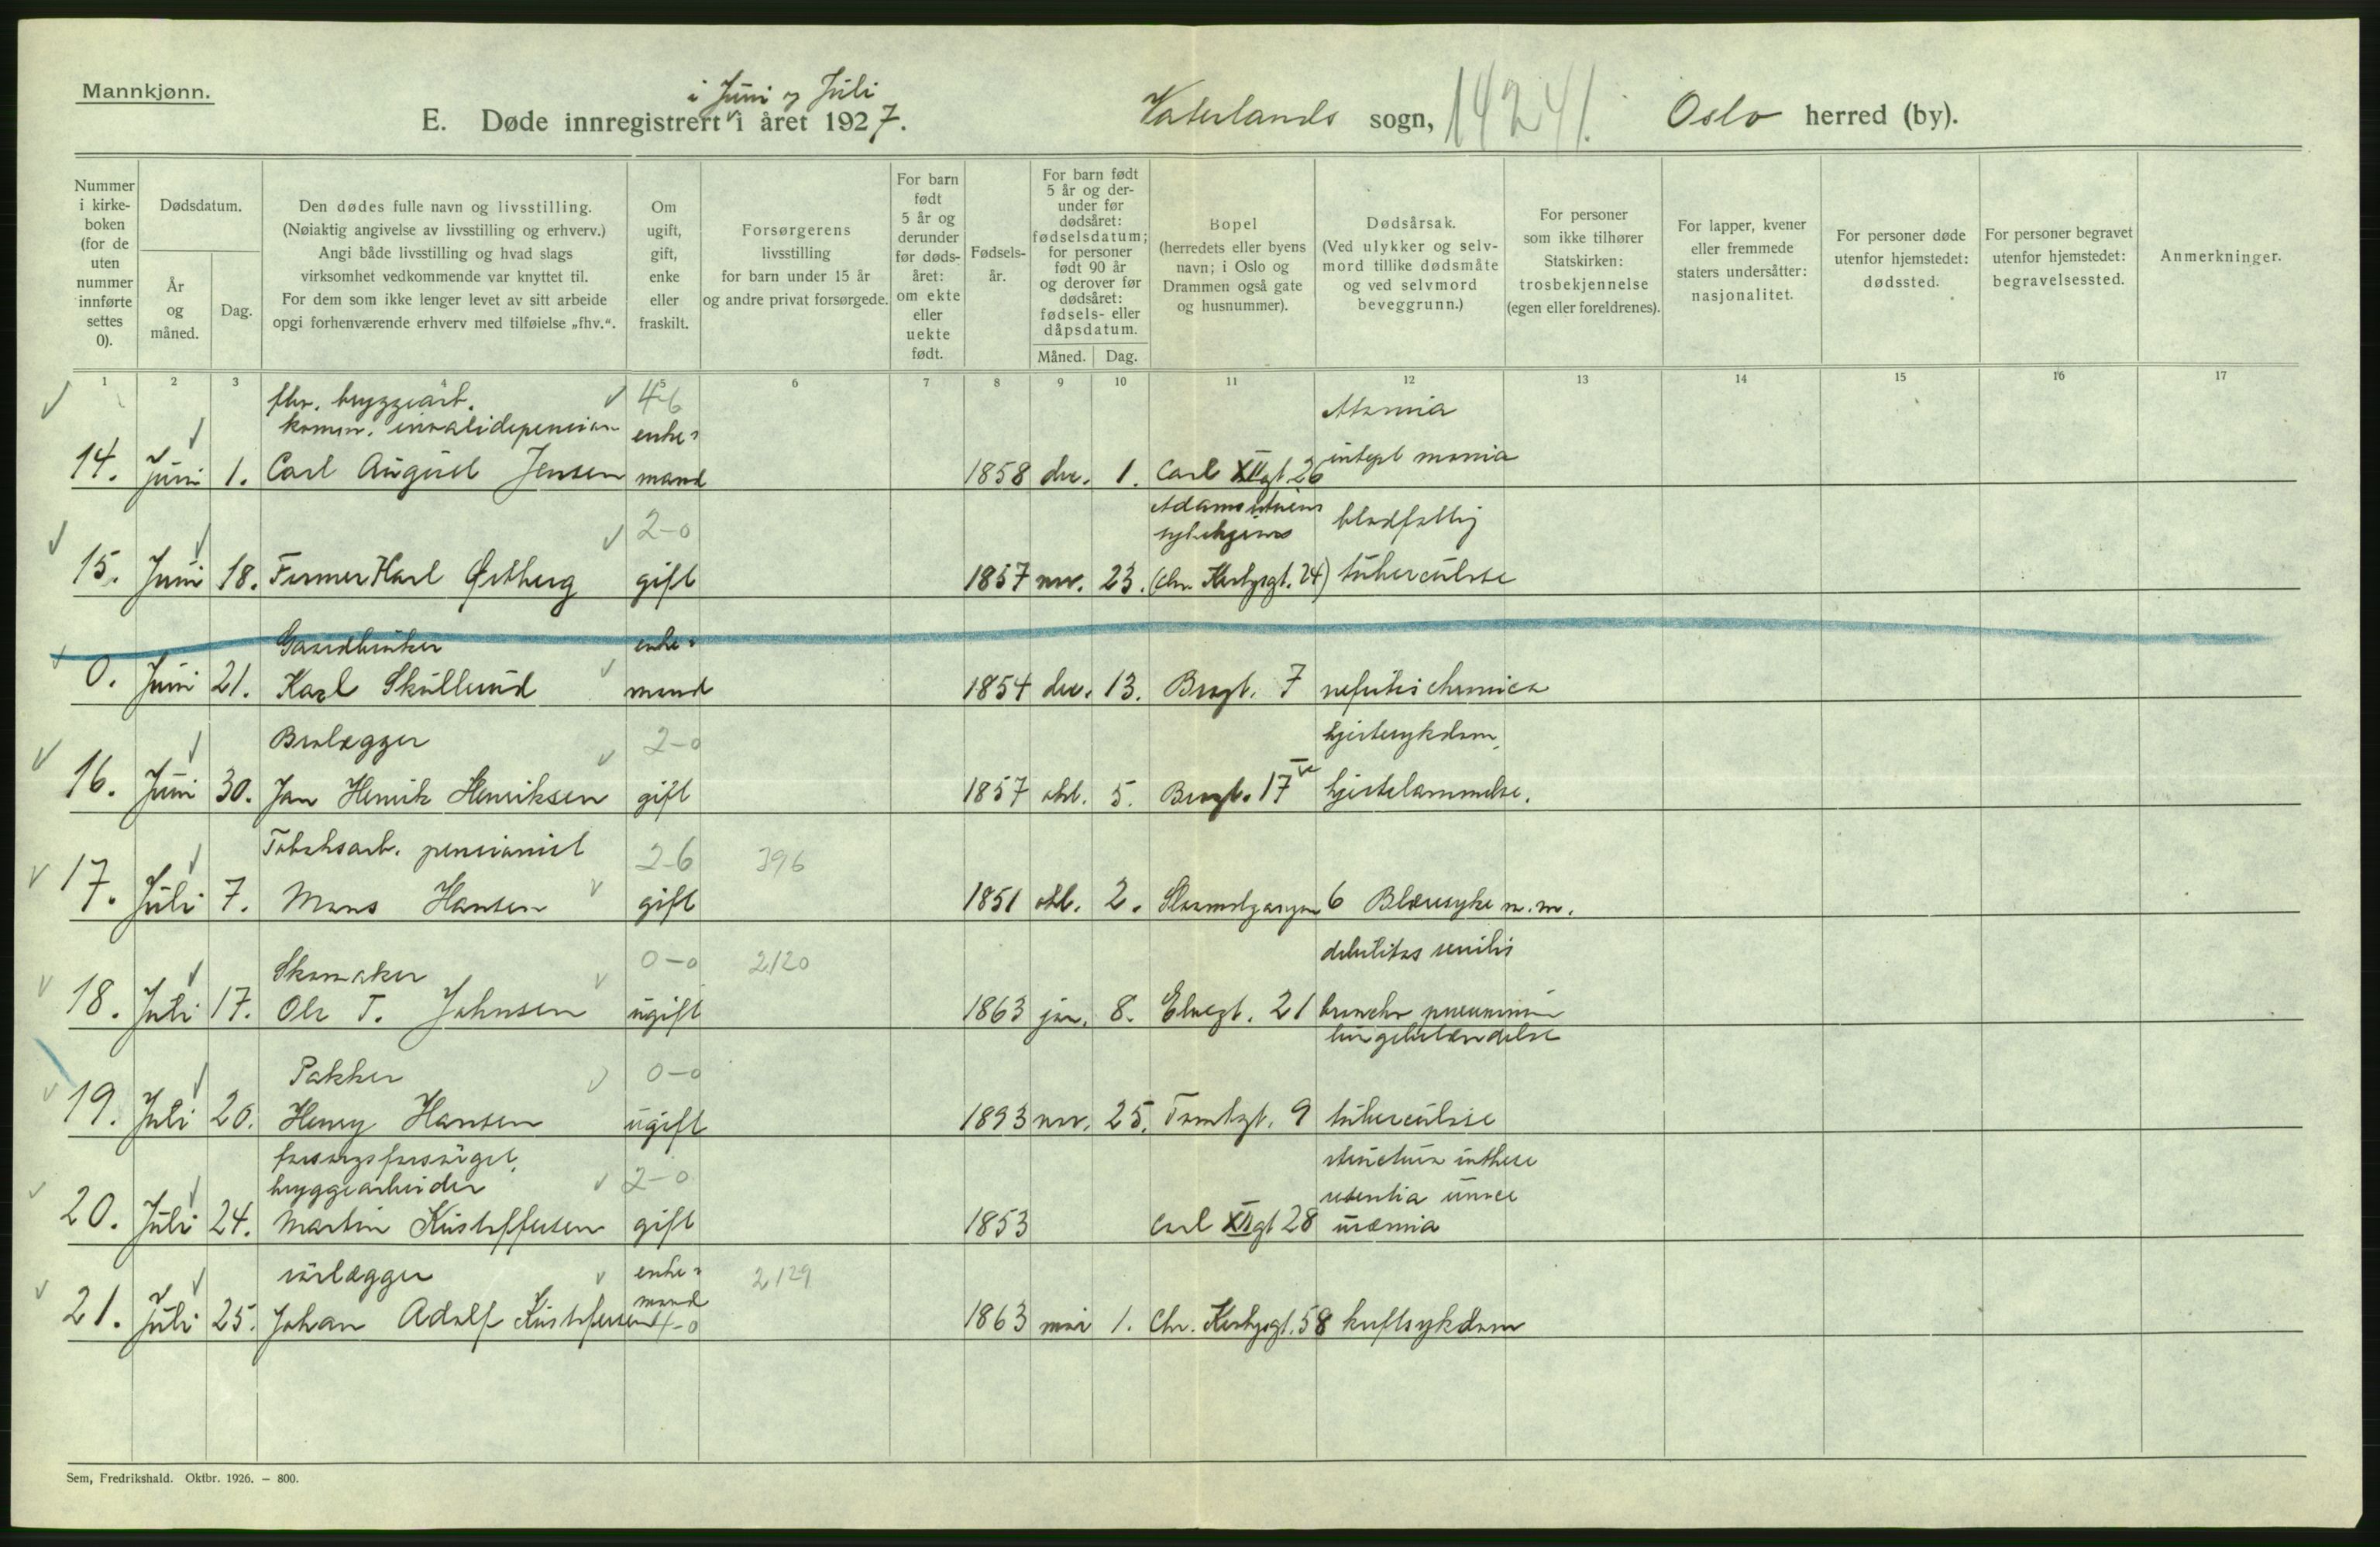 Mannkjønn.
i Juni og Juli
E. Døde innregistrert i året 1927.
Vaterlands sogn, 14241. Oslo herred (by).
Nummer i kirkeboken (for de uten nummer innførte settes 0).
Dødsdatum.
År og måned.
Dag.
Den dødes fulle navn og livsstilling.
(Nøiaktig angivelse av livsstilling og erhverv.)
Angi både livsstilling og hvad slags
virksomhet vedkommende var knyttet til.
For dem som ikke lenger levet av sitt arbeide
opgi forhenværende erhverv med tilføielse „fhv.“.
Om ugift, gift, enke eller fraskilt.
Forsørgerens
livsstilling
for barn under 15 år
og andre privat forsørgede.
For barn født 5 år og derunder før dødsåret: om ekte eller uekte født.
Fødsels-
år.
For barn født
5 år og der-
under før
dødsåret:
fødselsdatum;
for personer
født 90 år
og derover før
dødsåret:
fødsels- eller
dåpsdatum.
Måned. Dag.
Bopel
(herredets eller byens
navn; i Oslo og
Drammen også gate
og husnummer).
Dødsårsak.
(Ved ulykker og selv-
mord tillike dødsmåte
og ved selvmord
beveggrunn.)
For personer
som ikke tilhører
Statskirken:
trosbekjennelse
(egen eller foreldrenes).
For lapper, kvener
eller fremmede
staters undersåtter:
nasjonalitet.
For personer døde
utenfor hjemstedet:
dødssted.
For personer begravet
utenfor hjemstedet:
begravelsessted.
Anmerkninger.
1 2 3 4 5 6 7 8 9 10 11 12 13 14 15 16 17
fhv. bryggearb. 4-6
komm. invalidepension enke=
14. Juni 1. Carl August Jensen mand 1858 dec. 1. Carl XII gt. 26
2-0 sykehjem blodfattig
15. Juni 18. Karl Østberg gift 1857 nov. 23. (Chr. Krohgsgt. 24) tuberculose
Gaardbruker enke=
0. Juni 21. Karl Skullerud mand 1854 dec. 13. Brogt. 7 nefritis chronica
Brolægger 2-0 hjertesykdom,
16. Juni 30. Jan Henrik Henriksen gift 1857 okt. 5. Brogt. 17 hjertelammelse.
Tobaksarb. pensionist 2-6 396
17. Juli 7. Mons Hansen gift 1851 okt. 2. 6 Blæresyke m.m.
Skomaker 0-0 2120 debilitas senilis
18. Juli 17. Ole T. Johnsen ugift 1863 jan. 8. Elvegt. 21 broncho pneumoni
lungebetændelse
Pakker 0-0
19. Juli 20. Henry Hansen ugift 1893 nov. 25. Tomtegt. 9 tuberculose
forsorgsforsørget,
bryggearbeider 2-0
20. Juli 24. Martin Kristoffersen gift 1853 Carl XII gt 28 uræmia
rørlægger enke= 2129
21. Juli 25. Johan Adolf Kristoffersen mand 4-0 1863 mai 1. Chr. Krohgsgt. 58 kreftsykdom
Sem, Fredrikshald. Oktbr. 1926. – 800.